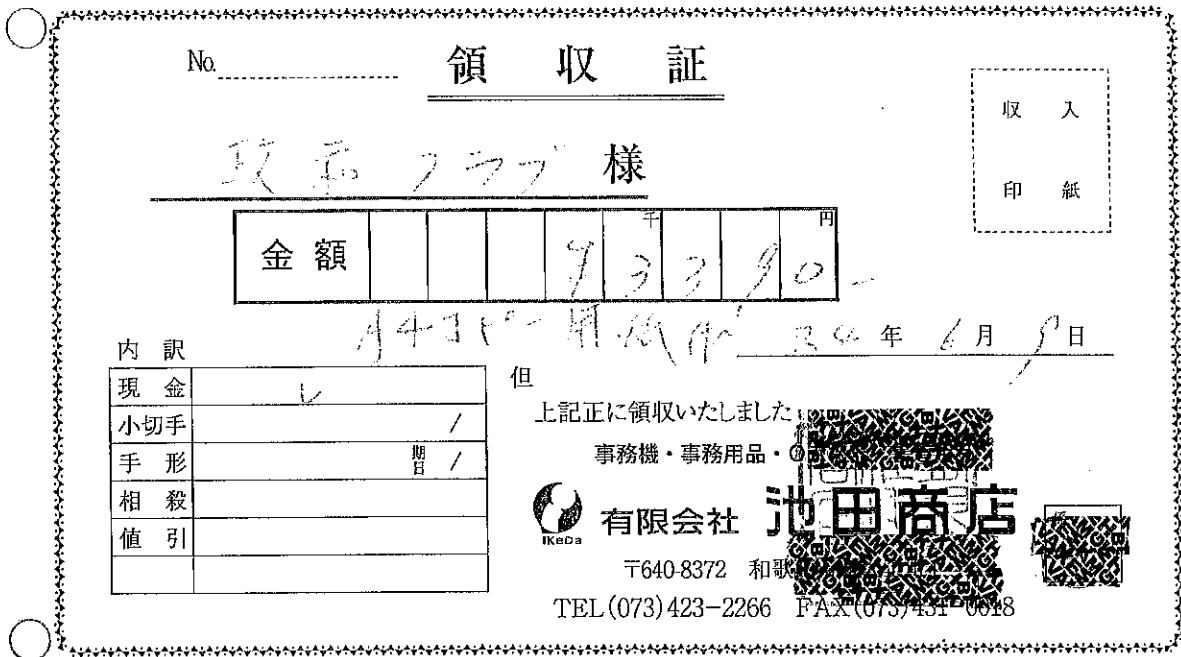 No. 領収証
収入
印紙
クラブ 様
金額 千 円
A4コピー用紙代
年 6月9日
内訳
現金 レ
小切手 /
手形 期日 /
相殺
値引
但
上記正に領収いたしました
事務機・事務用品・
IKeDa 有限会社 池田商店
〒640-8372 和歌
TEL(073)423-2266 FAX(073)431-0018